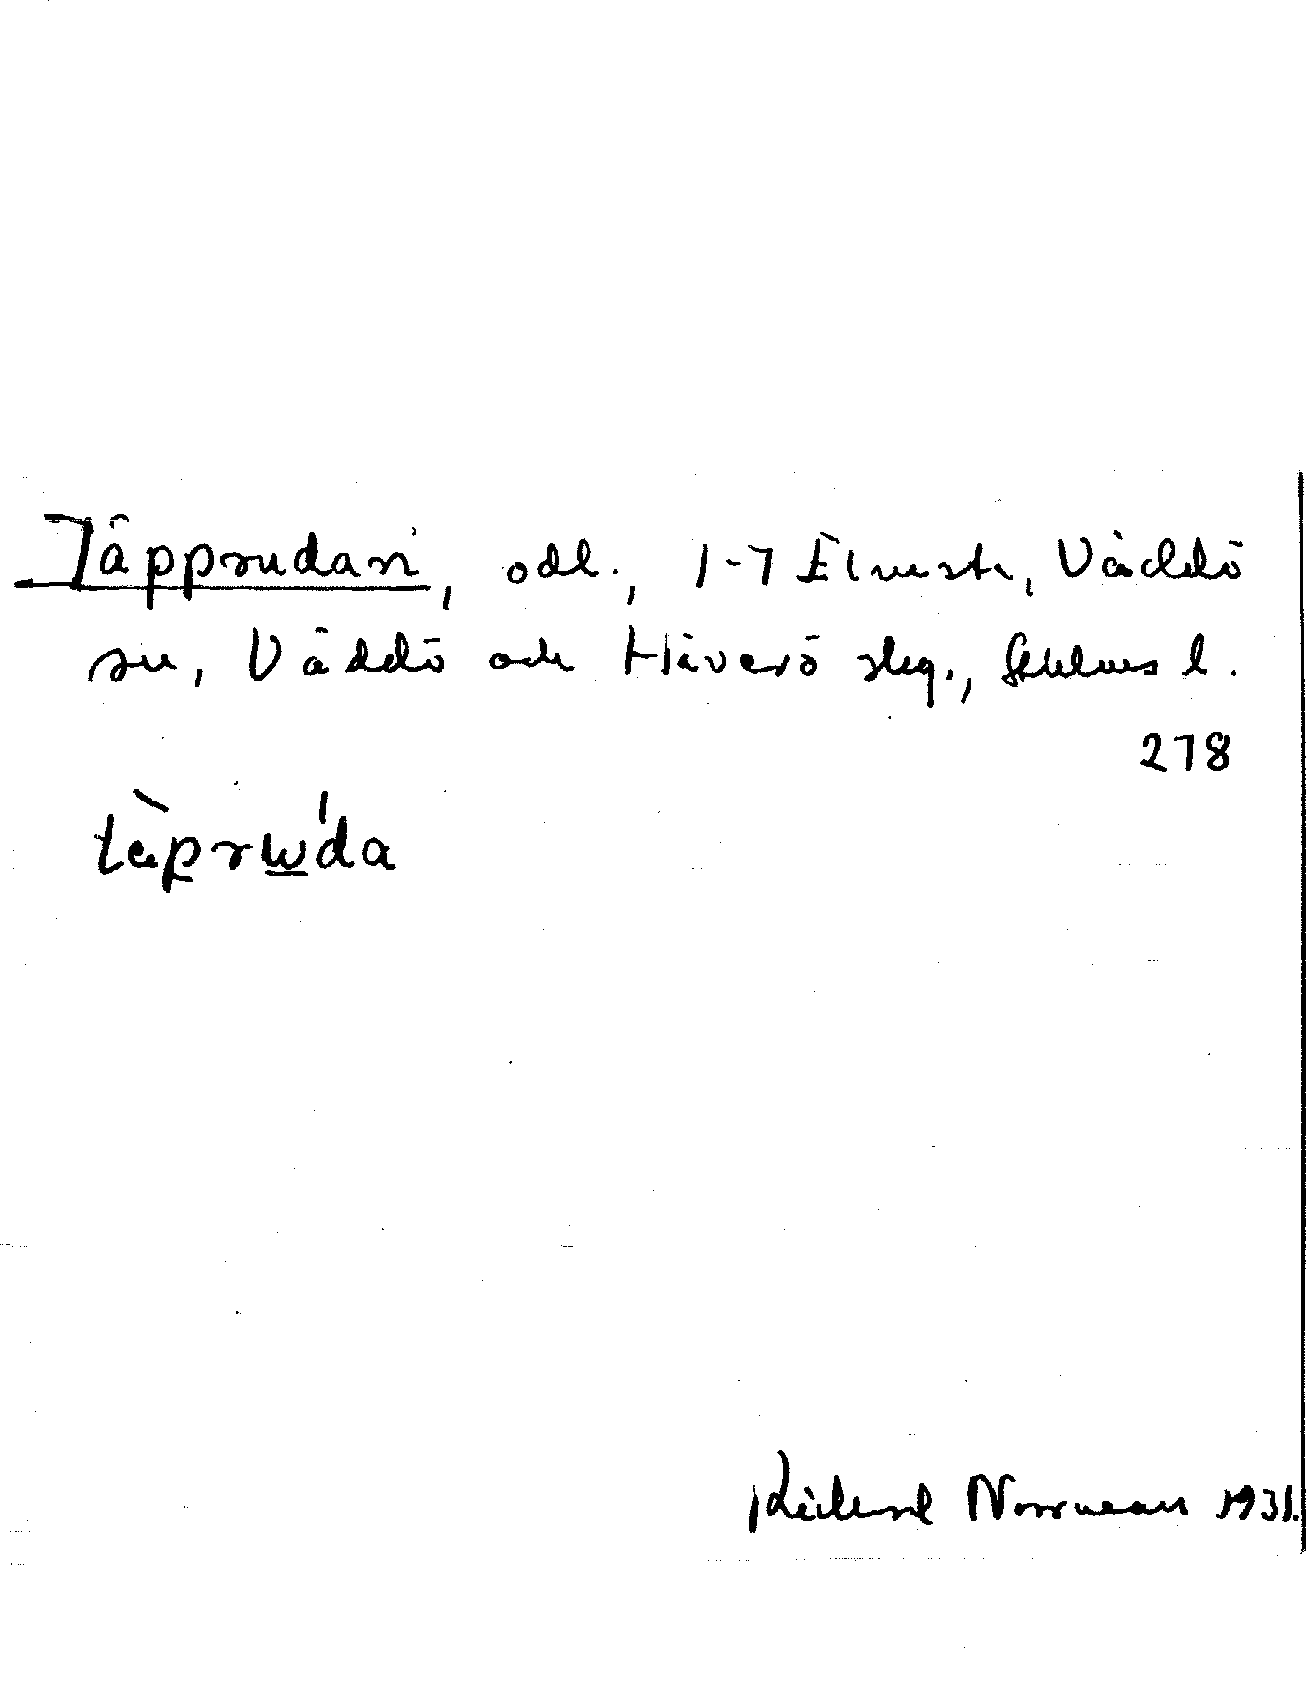 Täpprudan, odl., 1-7 Elmsta, Väddö
sn, Väddö och Häverö skg., Sthlms l.
278
tàprωda
Richard Norrman 1931.